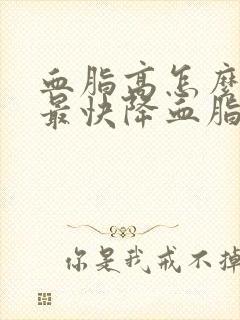 血脂高怎麽
最快降血脂
你是我戒不掉